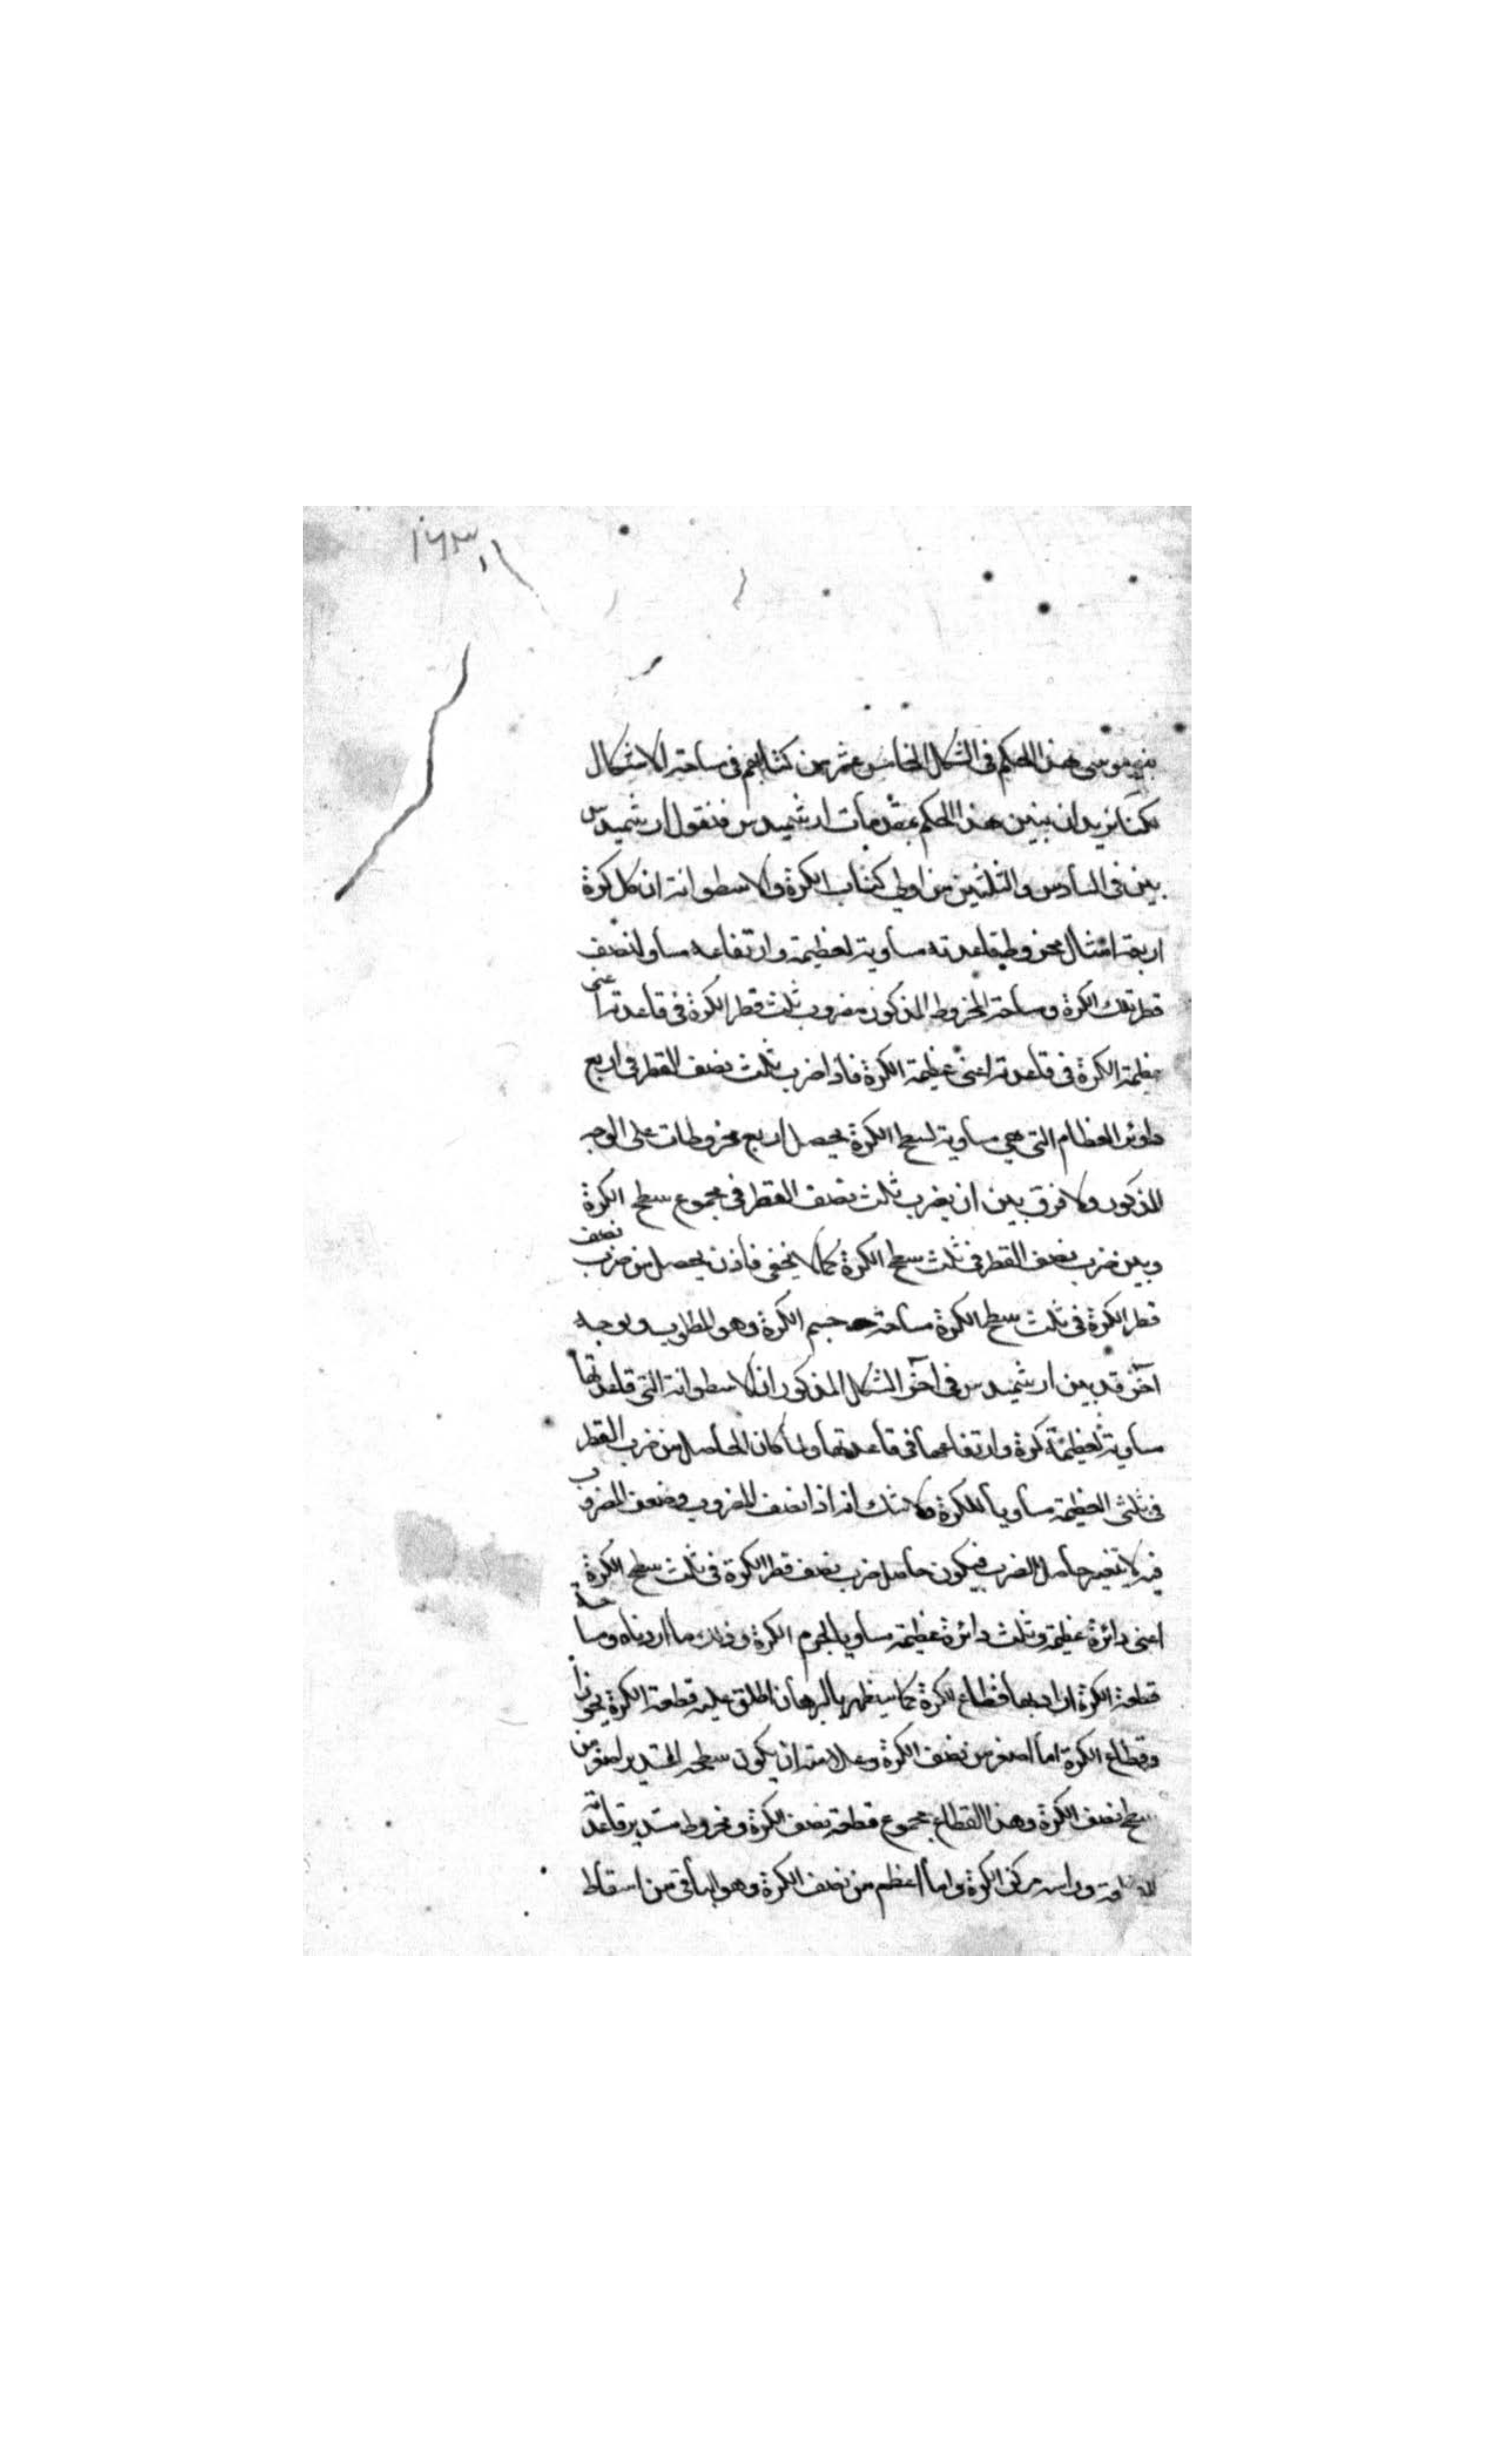 ١٦٣
بنو موسى هذا الحكم فى الشكل الخامس عشر من كتابهم فى مساحة الاشكال
لكنا نريد ان نبين هذا الحكم بمقدمات ارشميدس فنقول ارشميدس
بين فى السادس والثلثين من اولى كتاب الكرة والاسطوانة ان كل كرة
اربعة امثال مخروط قاعدته مساوية لعظيمة وارتفاعه مساو لنصف
قطر تلك الكرة ومساحة المخروط المذكور مضروب ثلث قطر الكرة فى قاعدته اعنى
عظيمة الكرة فى قاعدته اعنى عظيمة الكرة فاذا ضرب ثلث نصف القطر فى اربع
دوائر العظام التى هى مساوية لسطح الكرة يحصل اربع مخروطات على الوجه
المذكور ولا فرق بين ان يضرب ثلث نصف القطر فى مجموع سطح الكرة
وبين ضرب نصف القطر فى ثلث سطح الكرة كما لا يخفى فاذن يحصل من ضرب نصف
قطر الكرة فى ثلث سطح الكرة مساحة جسم الكرة وهو المطلوب وبوجه
آخر قد بين ارشميدس فى آخر الشكل المذكور ان الاسطوانة التى قاعدتها
مساوية لعظيمة كرة وارتفاعها فى قاعدتها ولما كان الحاصل من ضرب القطر
فى ثلثى العظيمة مساويا للكرة ولا شك انه اذا نصف المضروب وضعف المضروب
فيه لا يتغير حاصل الضرب فيكون حاصل ضرب نصف قطر الكرة فى ثلث سطح الكرة
اعنى دائرة عظيمة وثلث دائرة عظيمة مساويا لجرم الكرة وذلك ما اردناه ومساحة
قطعة الكرة اراد بها قطاع الكرة كما سيظهر بالبرهان اطلق عليه قطعة الكرة تجوزا
وقطاع الكرة اما اصغر من نصف الكرة وعلامته ان يكون سطحه المستدير اصغر من
سطح نصف الكرة وهذا القطاع مجموع قطعة نصف الكرة ومخروط مستدير قاعدته
ورأسه مركز الكرة واما اعظم من نصف الكرة وهو الباقى من اسقاط